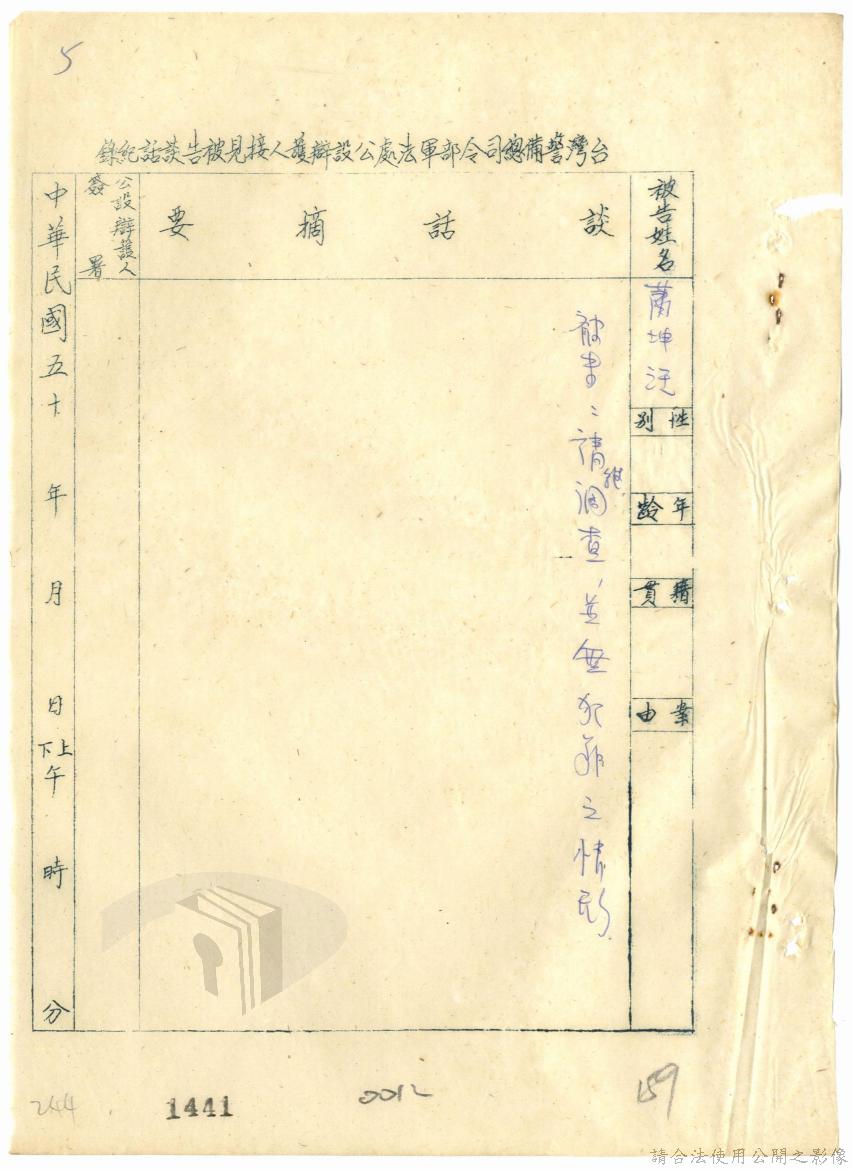 5
台灣警備總司令部軍法處公設辯護人接見被告談話紀錄
被告姓名
蕭坤
性別
年齡
籍貫
案由
談話摘要
被告:請調查,並無犯罪之情形
公設辯護人
簽署
中華民國五十年 月 日上下午 時 分
244
1441
0012
159
請合法使用公開之影像